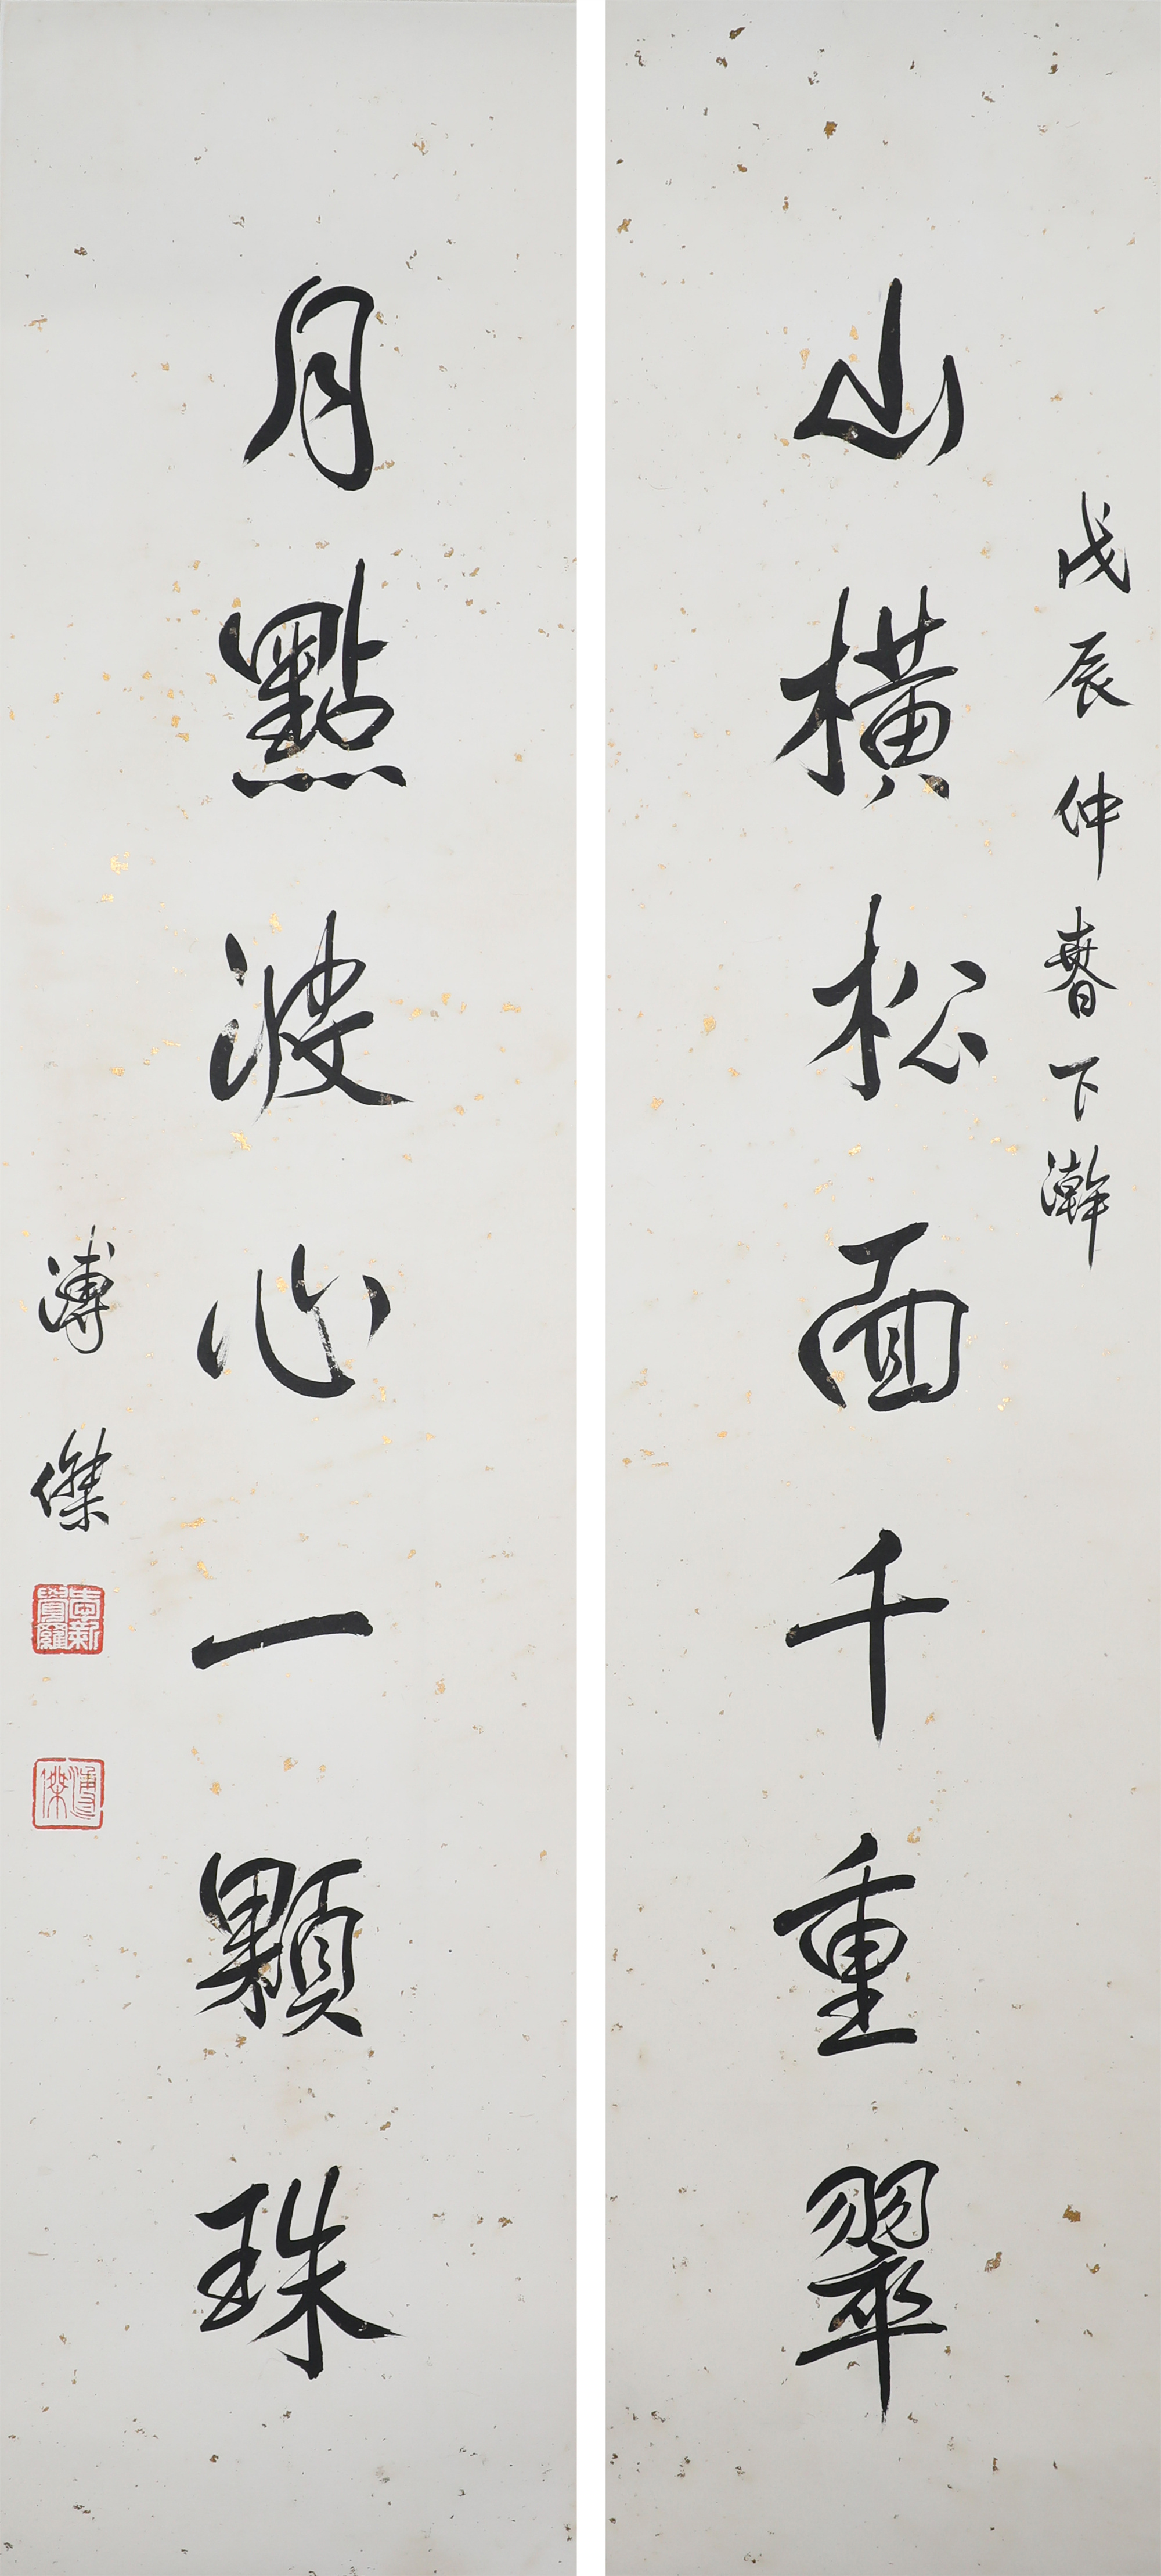 戊辰仲春下澣
山橫松面千重翠
月點波心一顆珠
溥傑
愛新覺羅
溥傑